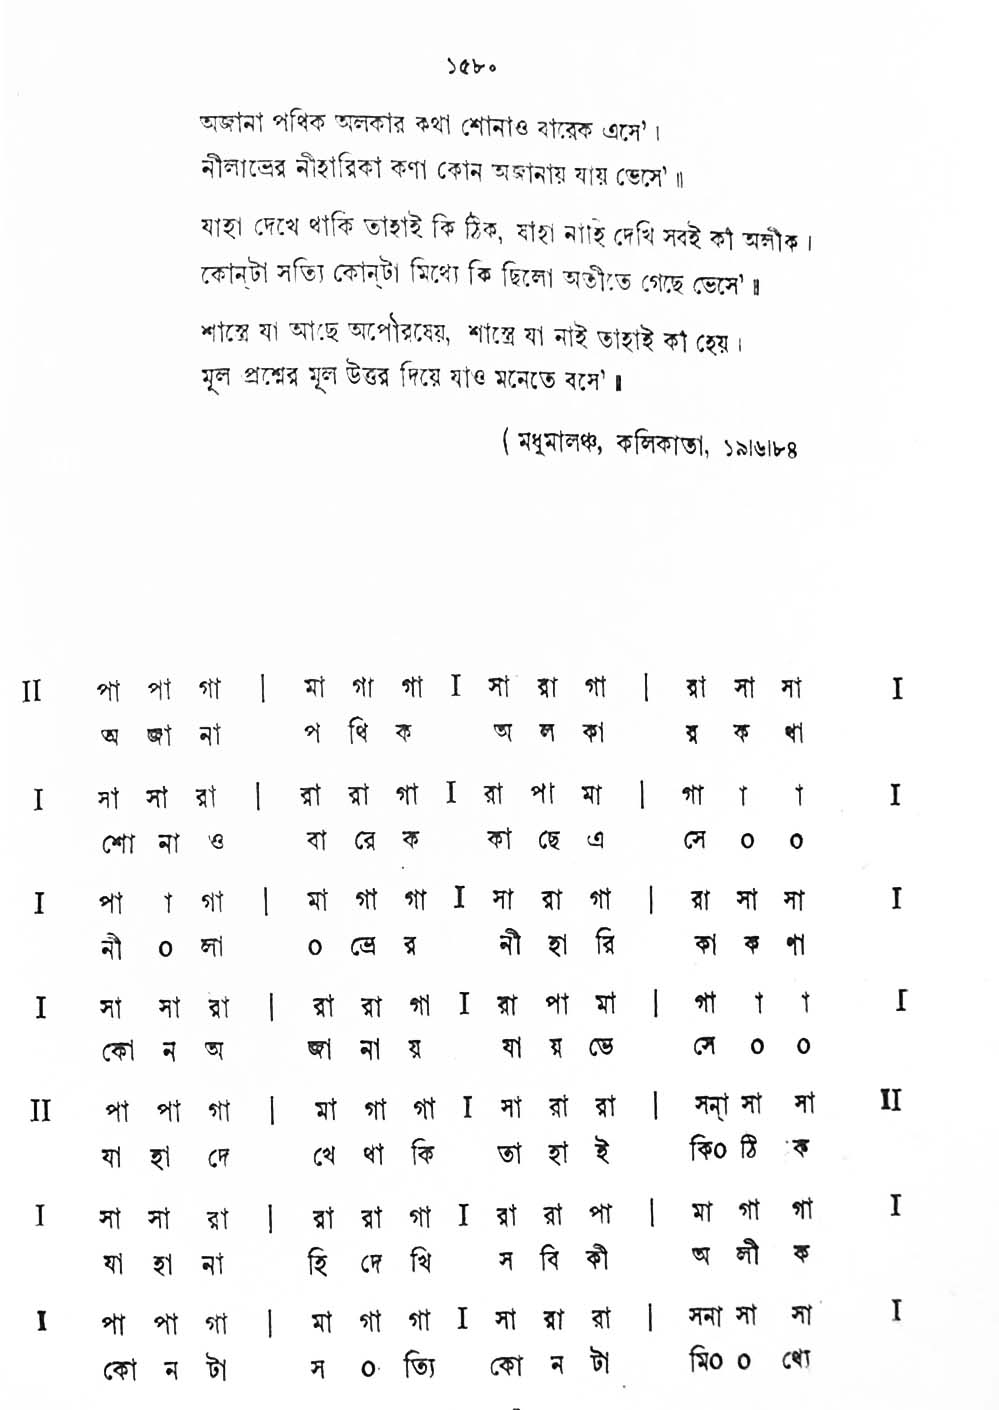 ১৫৮০
অজানা পথিক অলকার কথা শোনাও বারেক এসে' ।
নীলাভ্রের নীহারিকা কণা কোন অজানায় যায় ভেসে' ॥
যাহা দেখে থাকি তাহাই কি ঠিক, যাহা নাহি দেখি সবই কী অলীক ।
কোন্‌টা সত্যি কোন্‌টা মিথ্যে কি ছিলো অতীতে গেছে ভেসে' ॥
শাস্ত্রে যা আছে অপৌরষেয়, শাস্ত্রে যা নাই তাহাই কী হেয় ।
মূল প্রশ্নের মূল উত্তর দিয়ে যাও মনেতে বসে' ॥
( মধুমালঞ্চ, কলিকাতা, ১৯।৬।৮৪
II পা পা গা | মা গা গা I সা রা গা | রা সা সা I
অ জা না প থি ক অ ল কা র ক থা
I সা সা রা | রা রা গা I রা পা মা | গা া া I
শো না ও বা রে ক কা ছে এ সে ০ ০
I পা া গা | মা গা গা I সা রা গা | রা সা সা I
নী ০ লা ০ ভ্রে র নী হা রি কা ক ণা
I সা সা রা | রা রা গা I রা পা মা | গা া া I
কো ন অ জা না য় যা য় ভে সে ০ ০
II পা পা গা | মা গা গা I সা রা রা | সন্া সা সা II
যা হা দে খে থা কি তা হা ই কি০ ঠি ক
I সা সা রা | রা রা গা I রা রা পা | মা গা গা I
যা হা না হি দে খি স বি কী অ লী ক
I পা পা গা | মা গা গা I সা রা রা | সনা সা সা I
কো ন টা স ০ ত্যি কো ন টা মি০ ০ থ্যে